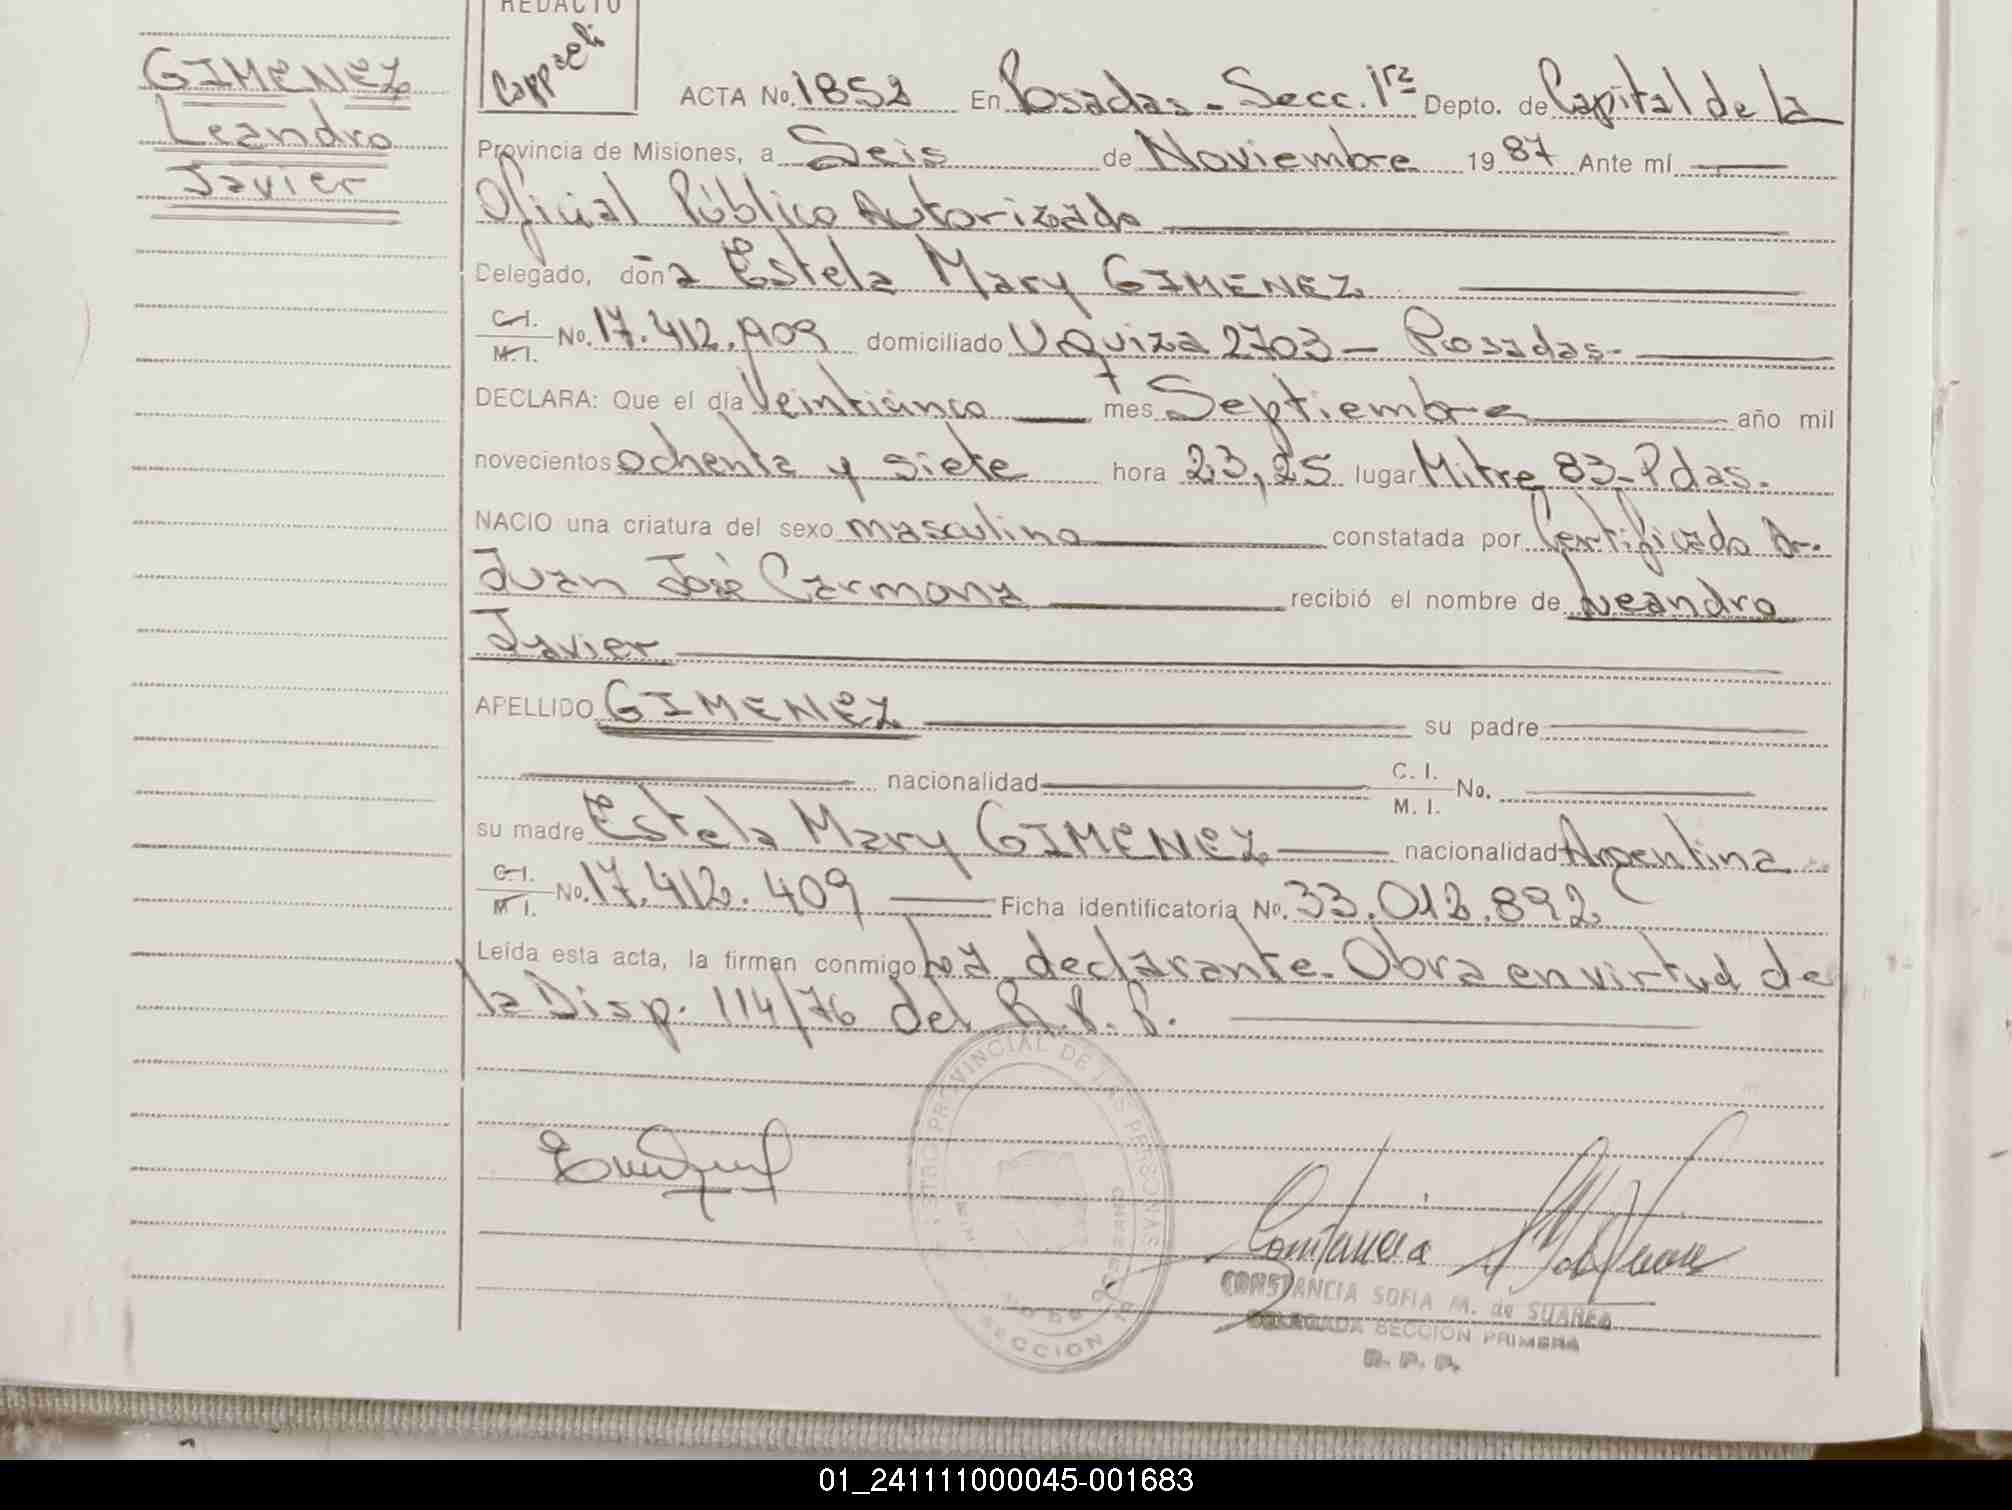 REDACTO
GIMENEZ
Leandro
Javier
ACTA No. 1852 En Posadas - Secc. 1ra Depto. de Capital de la
Provincia de Misiones, a Seis de Noviembre 1987 Ante mí
Oficial Público Autorizado
Delegado, doña Estela Mary GIMENEZ
C.I. M.I. No. 17.412.909 domiciliado Urquiza 2703 - Posadas-
DECLARA: Que el día Veinticinco mes Septiembre año mil
novecientos ochenta y siete hora 23,25 lugar Mitre 83-Pdas.
NACIO una criatura del sexo masculino constatada por Certificado Dr.
Juan José Carmona recibió el nombre de Leandro
Javier
APELLIDO GIMENEZ su padre
nacionalidad C.I. M.I. No.
su madre Estela Mary GIMENEZ nacionalidad Argentina
C.I. M.I. No. 17.412.409 Ficha identificatoria No. 33.012.892
Leída esta acta, la firman conmigo La declarante. Obra en virtud de
la Disp. 114/76 del R.P.P.
PROVINCIAL DE LAS PERSONAS
SECCION
CONSTANCIA SOFIA M. de SUAREZ
DELEGADA SECCION PRIMERA
R. P. P.
01_241111000045-001683